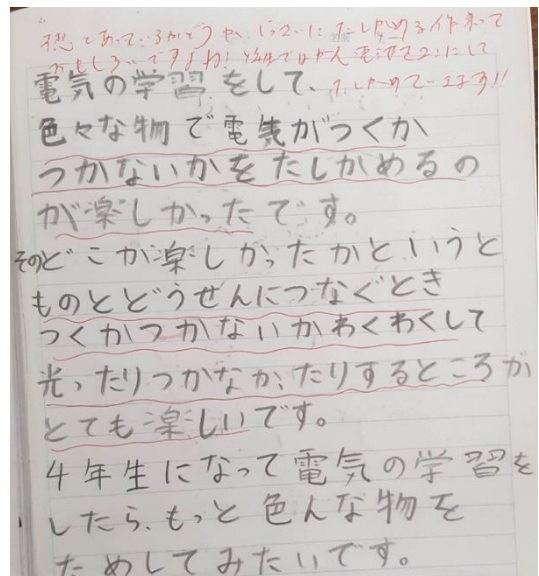 予想とあっているかどうか じっさいにたしかめる作業って
おもしろいですよね! 4年ではかん電池を2つにして
たしかめていきます!!
電気の学習をして、
色々な物で電気がつくか
つかないかをたしかめるの
が楽しかったです。
そのどこが楽しかったかというと
ものとどうせんにつなぐとき
つくかつかないかわくわくして
光ったりつかなかったりするところが
とても楽しいです。
4年生になって電気の学習を
したら、もっと色んな物を
ためしてみたいです。